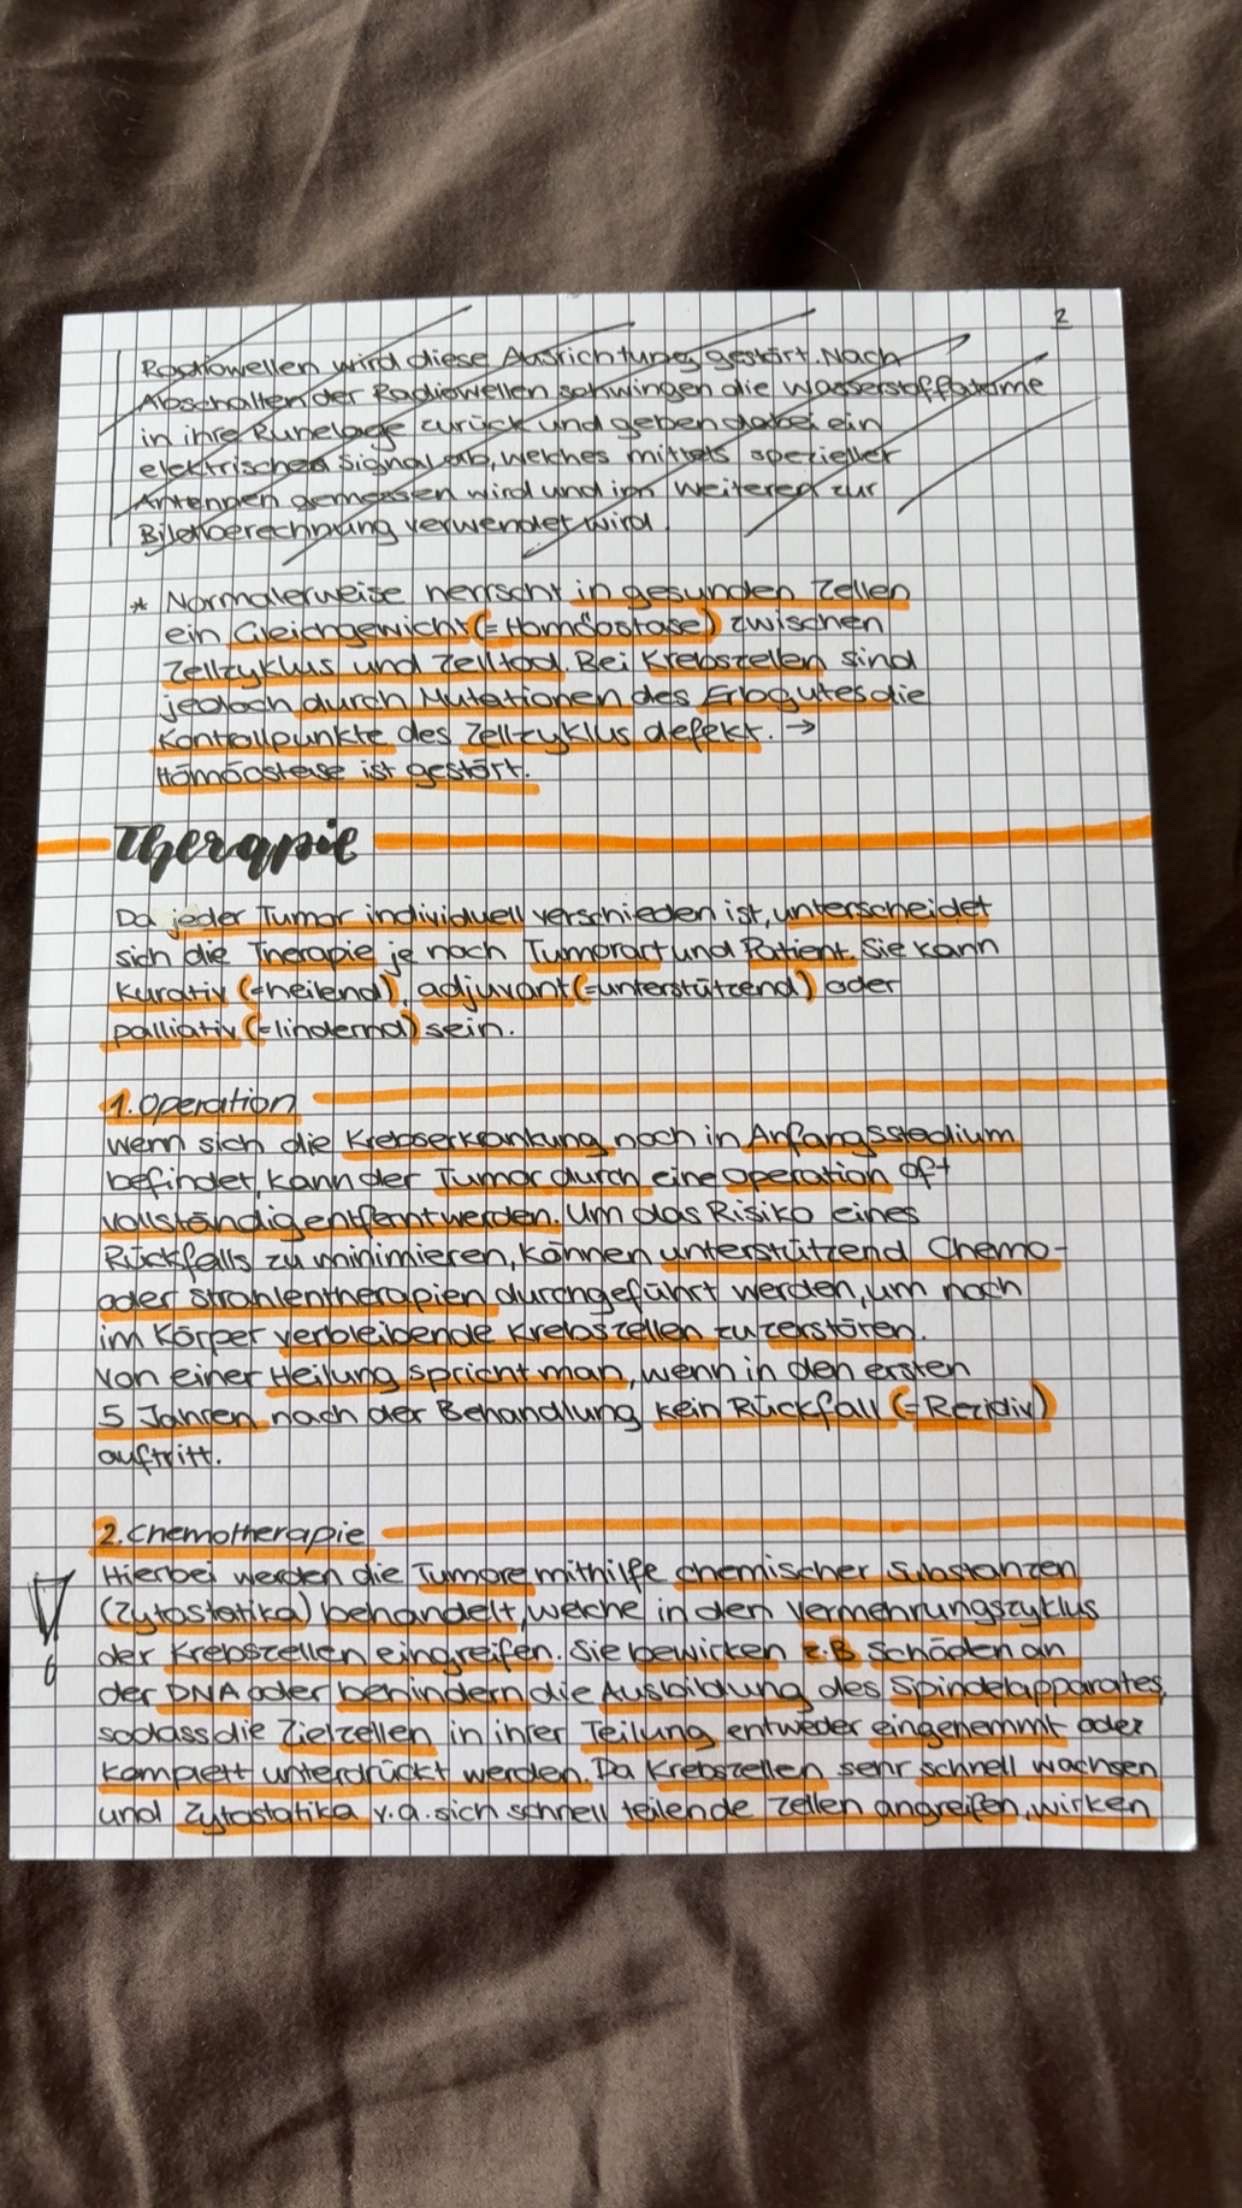 2
Radiowellen wird diese Ausrichtung gestört. Nach
Abschalten der Radiowellen schwingen die Wasserstoffatome
in ihre Ruhelage zurück und geben dabei ein
elektrisches Signal ab, welches mittels spezieller
Antennen gemessen wird und im weiteren zur
Bildberechnung verwendet wird.
* Normalerweise herrscht in gesunden Zellen
ein Gleichgewicht (= Homöostase) zwischen
Zellzyklus und Zelltod. Bei Krebszellen sind
jedoch durch Mutationen des Erbgutes die
Kontrollpunkte des Zellzyklus defekt. →
Homöostase ist gestört.
Therapie
Da jeder Tumor individuell verschieden ist, unterscheidet
sich die Therapie je nach Tumorart und Patient. Sie kann
kurativ (=heilend), adjuvant (=unterstützend) oder
palliativ (=lindernd) sein.
1. Operation
Wenn sich die Krebserkrankung noch in Anfangsstadium
befindet, kann der Tumor durch eine Operation oft
vollständig entfernt werden. Um das Risiko eines
Rückfalls zu minimieren, können unterstützend Chemo-
oder Strahlentherapien durchgeführt werden, um noch
im Körper verbleibende Krebszellen zu zerstören.
Von einer Heilung spricht man, wenn in den ersten
5 Jahren nach der Behandlung kein Rückfall (=Rezidiv)
auftritt.
2. Chemotherapie
! Hierbei werden die Tumore mithilfe chemischer Substanzen
(Zytostatika) behandelt, welche in den Vermehrungszyklus
der Krebszellen eingreifen. Sie bewirken z.B Schäden an
der DNA oder behindern die Ausbildung des Spindelapparates,
sodass die Zielzellen in ihrer Teilung entweder eingehemmt oder
komplett unterdrückt werden. Da Krebszellen sehr schnell wachsen
und Zytostatika v.a. sich schnell teilende Zellen angreifen, wirken